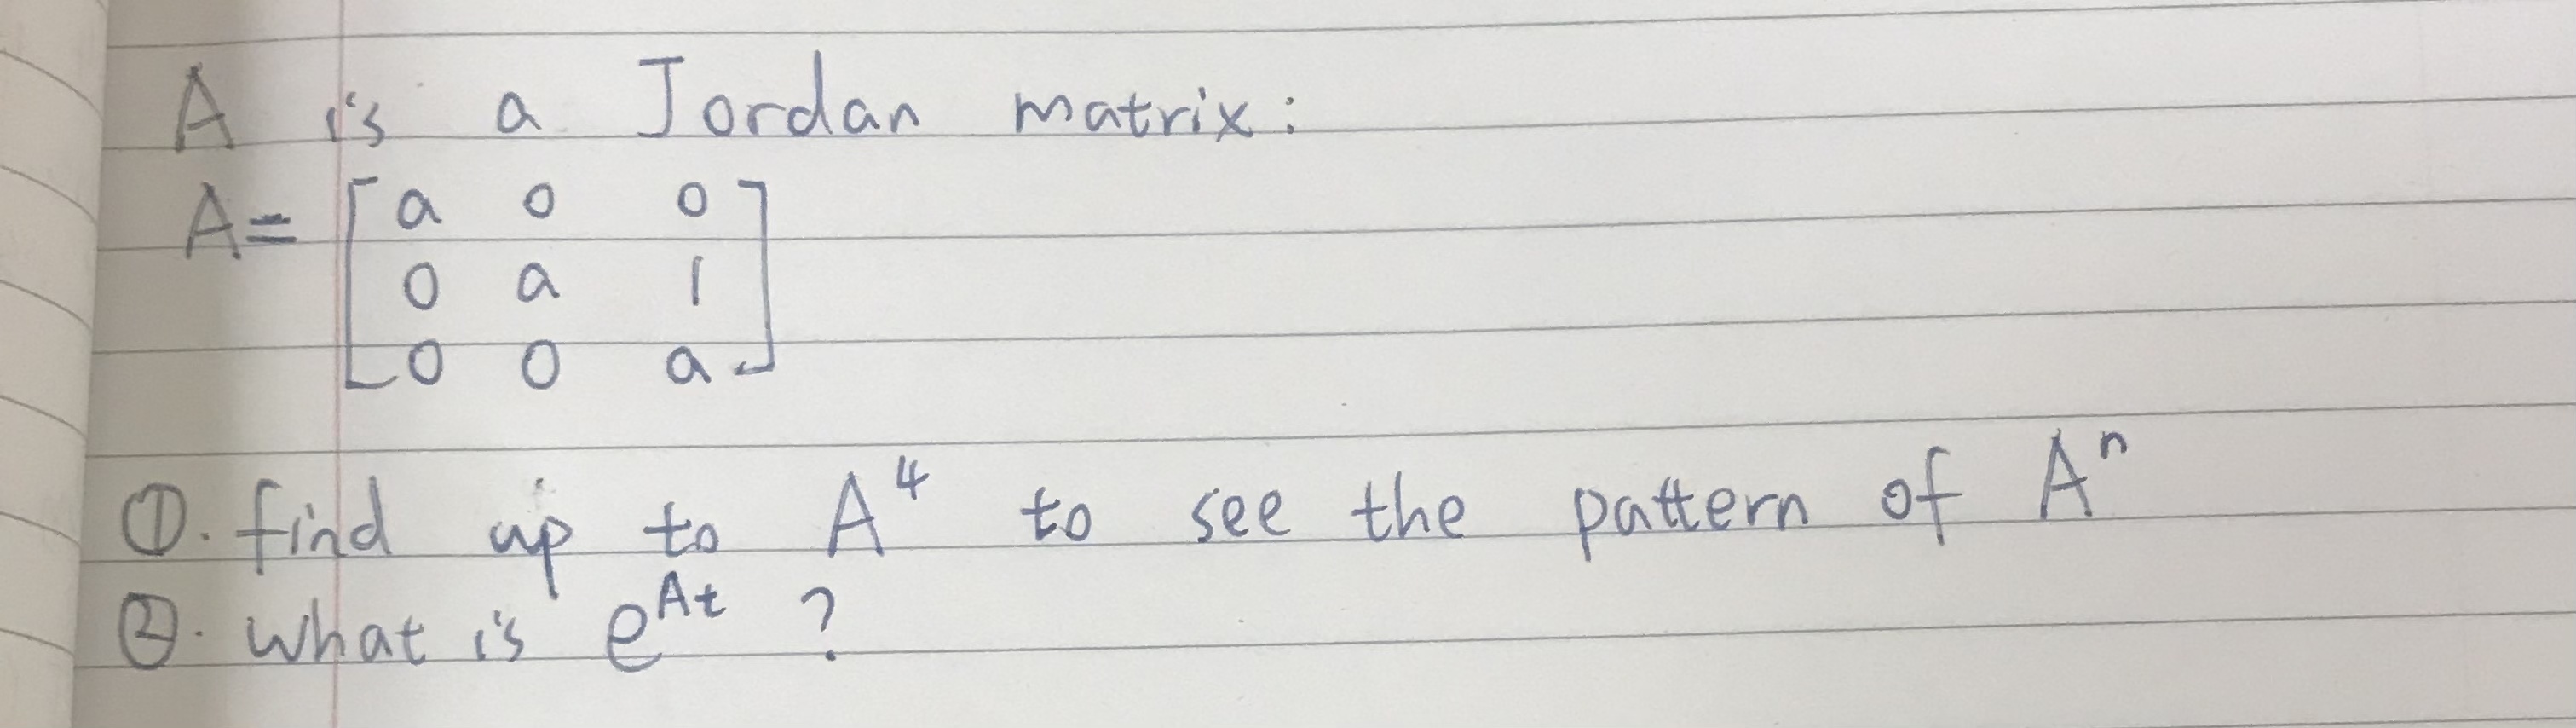 A is a Jordan matrix:
A= [ a 0 0
0 a 1
0 0 a ]
①. find up to A⁴ to see the pattern of Aⁿ
②. what is e^At ?